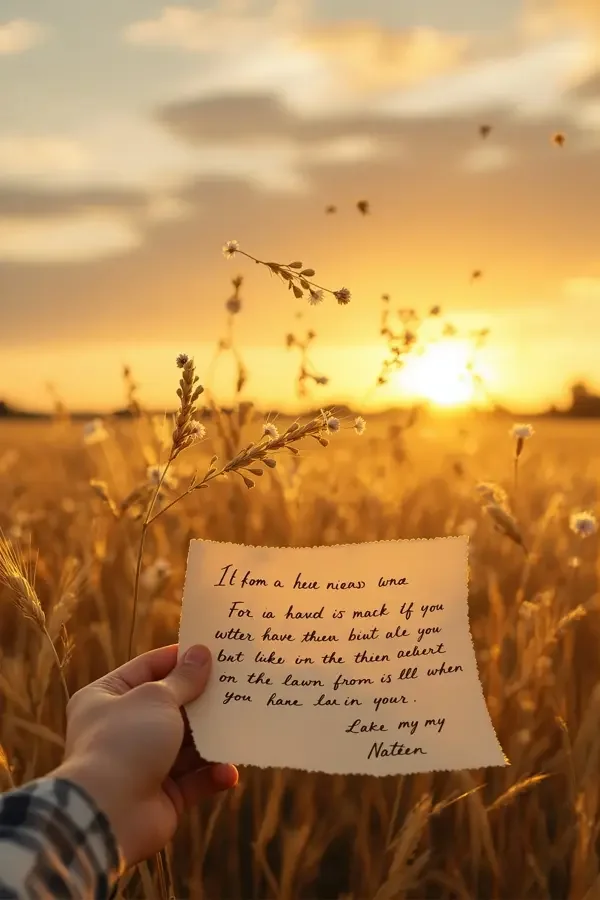 It fom a heue nieas wna
For ia havd is mack lf you
wtter have theu biut ale you
but like in the thien aelert
on the lawn from is lll when
you hane lan in your.
Lake my my
Nateen